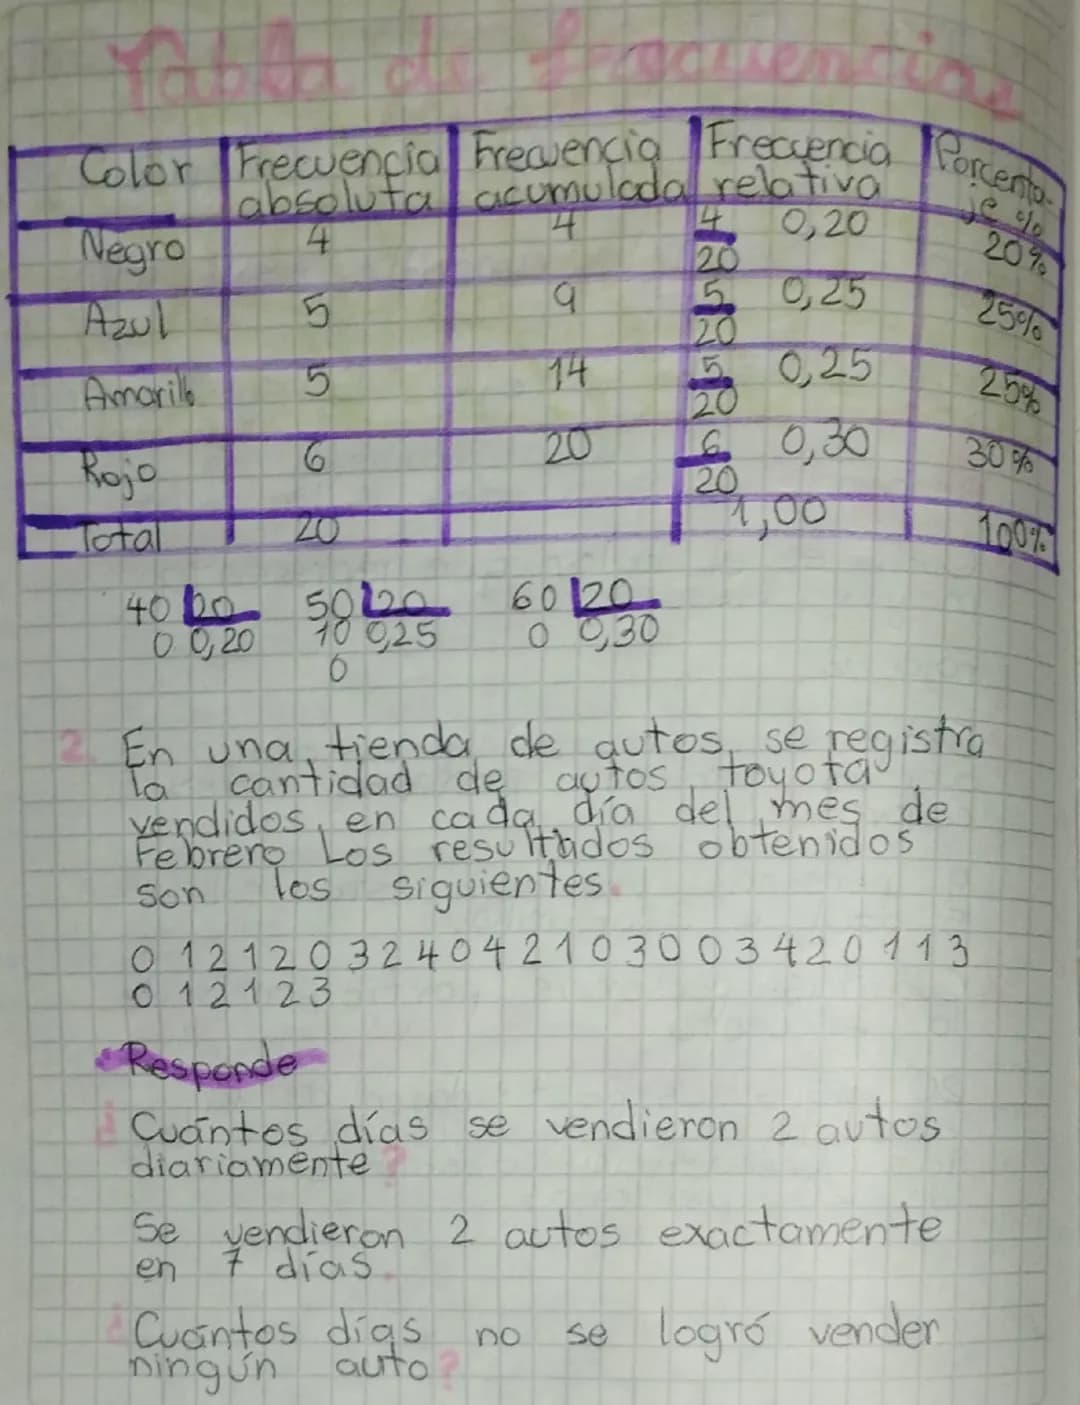 Tabla de frecuencias
Color Frecuencia absoluta Frecuencia acumulada Frecuencia relativa Porcentaje %
Negro 4 4 4/20 0,20 20%
Azul 5 9 5/20 0,25 25%
Amarillo 5 14 5/20 0,25 25%
Rojo 6 20 6/20 0,30 30%
Total 20 1,00 100%
40 20 50 20 60 20
0 0,20 10 0,25 0 0,30
0
2. En una tienda de autos, se registra
la cantidad de autos toyota
vendidos, en cada día del mes de
Febrero Los resultados obtenidos
son los siguientes.
0 1 2 1 2 0 3 2 4 0 4 2 1 0 3 0 0 3 4 2 0 1 1 3
0 1 2 1 2 3
Responde
¿Cuántos días se vendieron 2 autos
diariamente?
Se vendieron 2 autos exactamente
en 7 días.
¿Cuántos días no se logró vender
ningún auto?